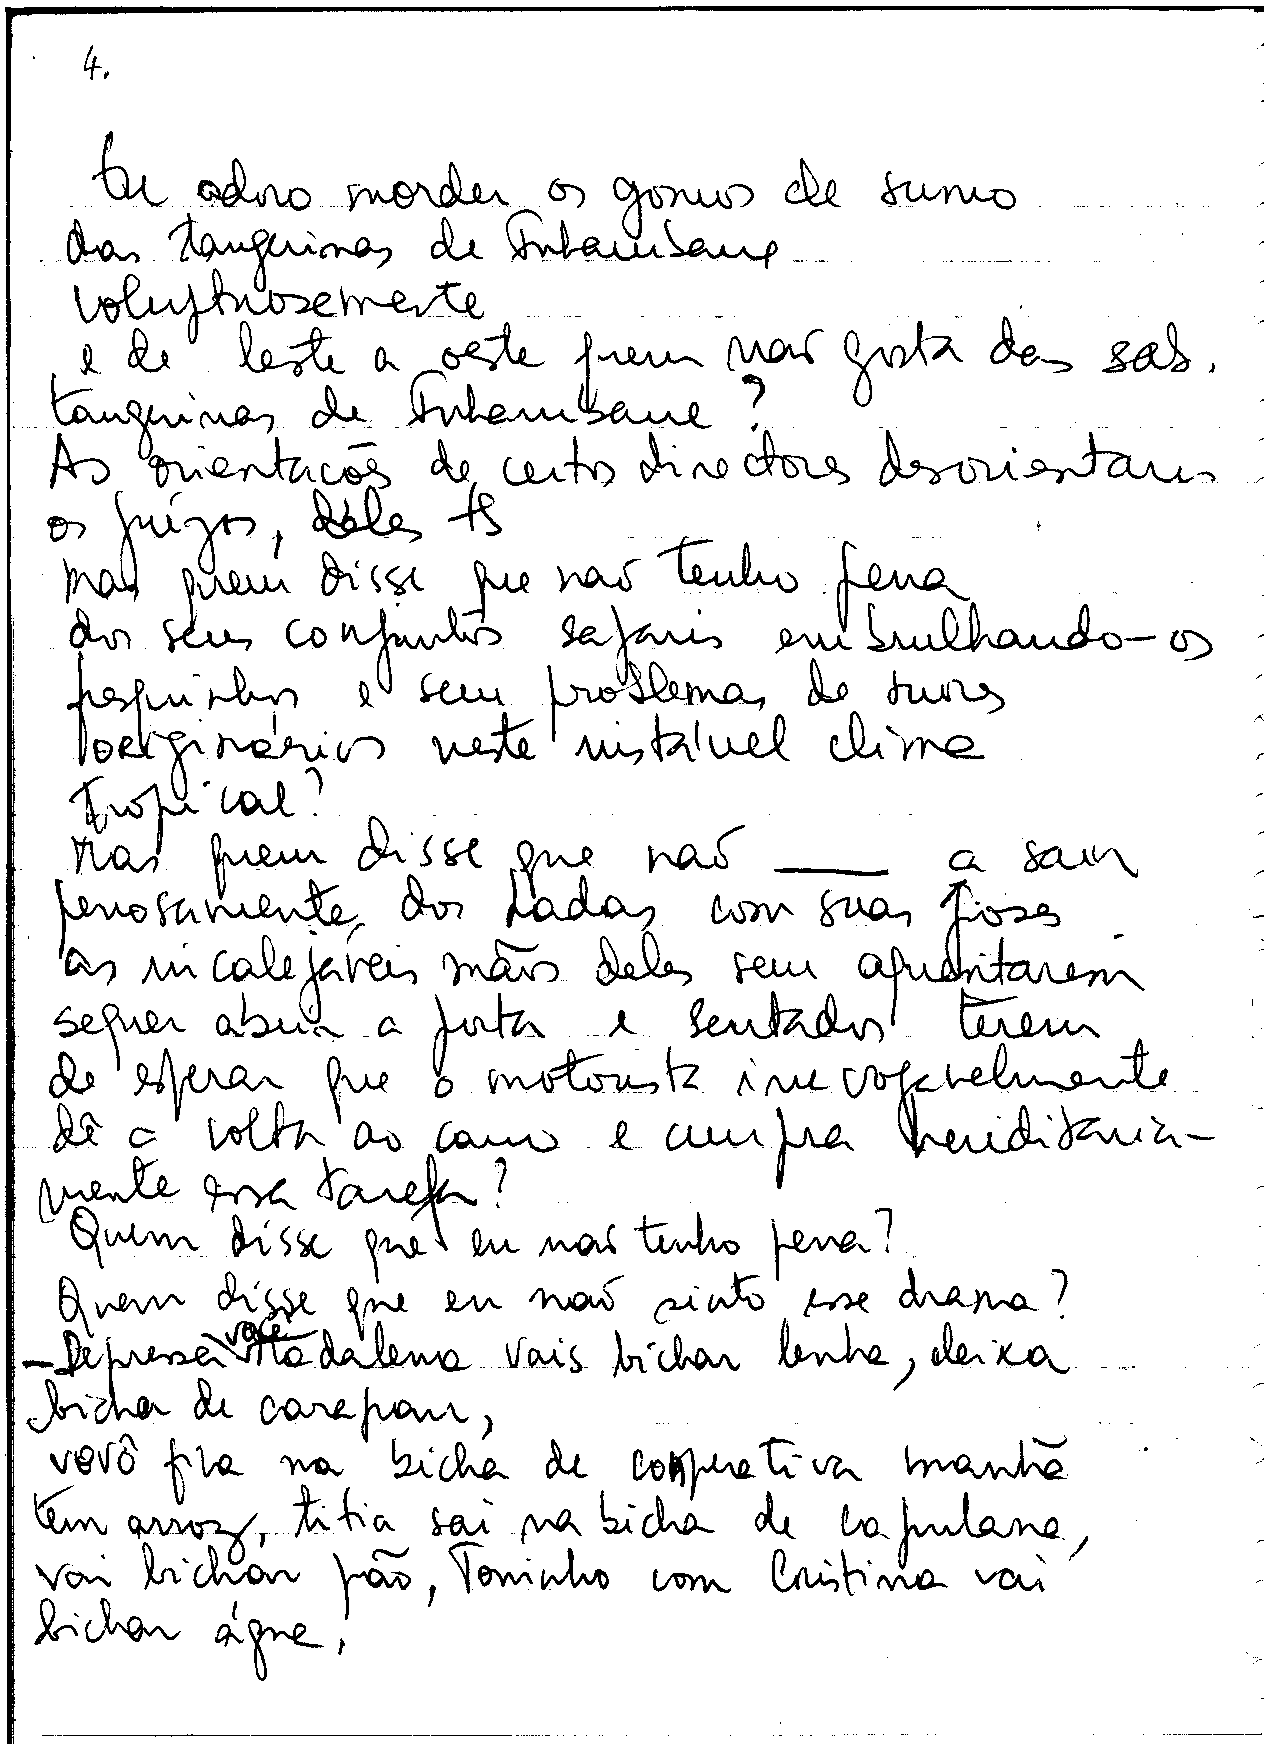 4.
Eu adoro morder os gomos de sumo
das tangerinas de Inhambane
voluptuosamente
e de leste a oeste quem não gosta das sab.
tangerinas de Inhambane?
As orientações de certos directores desorientam
os juízos, deles
mas quem disse que não tenho pena
dos seus conjuntos safaris embrulhando-os
fresquinhos e sem problemas de suores
originários neste instável clima
tropical?
Mas quem disse que não ____ a sair
penosamente dos Ladas com suas poses
as incalejáveis mãos deles sem aguentarem
sequer abrir a porta e sentados terem
de esperar que o motorista irrevogavelmente
dê a volta ao carro e cumpra hereditaria-
mente essa tarefa?
Quem disse que eu não tenho pena?
Quem disse que eu não sinto esse drama?
- Depressa você Madalena vais bichar lenha, deixa
bicha de carapau,
vovô fica na bicha de cooperativa manhã
tem arroz, titia sai na bicha de capulana,
vai bichar pão, Toninho com Cristina vai
bichar água.